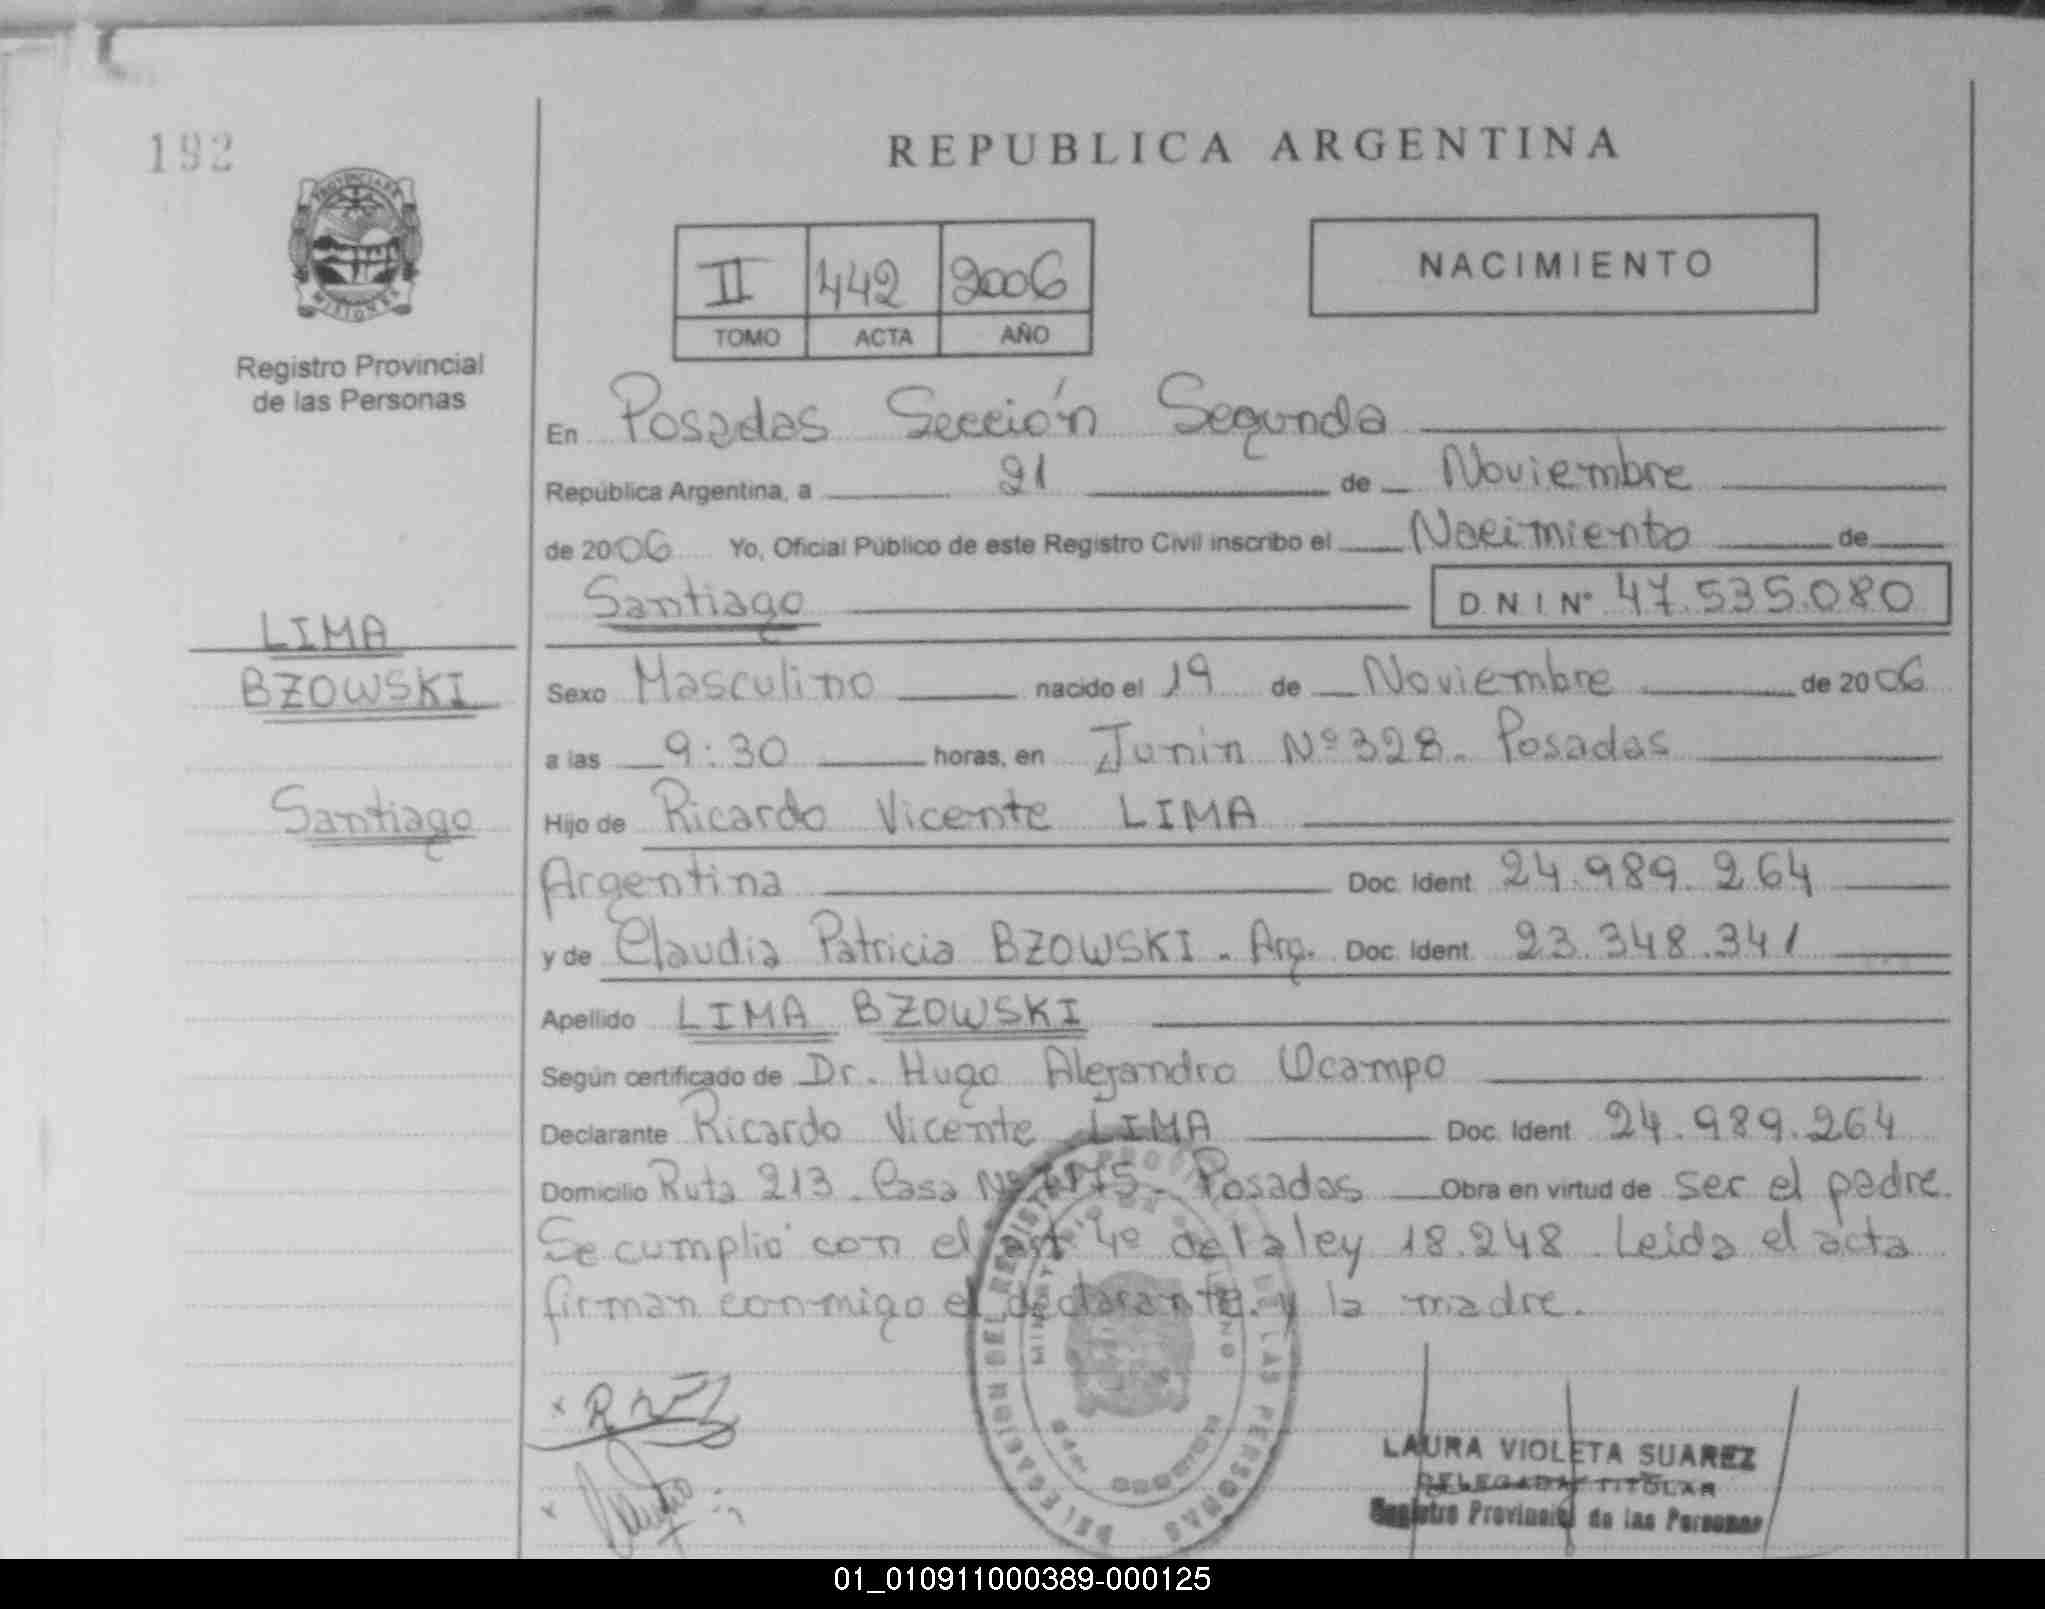 192
REPUBLICA ARGENTINA
PROVINCIA DE
MISIONES
Registro Provincial
de las Personas
II 442 2006
TOMO ACTA AÑO
NACIMIENTO
En Posadas Sección Segunda
República Argentina, a 21 de Noviembre
de 2006 Yo, Oficial Público de este Registro Civil inscribo el Nacimiento de
Santiago D.N.I.Nº 47.535.080
LIMA
BZOWSKI
Santiago
Sexo Masculino nacido el 19 de Noviembre de 2006
a las 9:30 horas, en Junin Nº 328. Posadas
Hijo de Ricardo Vicente LIMA
Argentina Doc. Ident. 24.989.264
y de Claudia Patricia BZOWSKI - Arg. Doc. Ident. 23.348.341
Apellido LIMA BZOWSKI
Según certificado de Dr. Hugo Alejandro Ocampo
Declarante Ricardo Vicente LIMA Doc. Ident. 24.989.264
Domicilio Ruta 213 - Casa Nº Posadas Obra en virtud de ser el padre.
Se cumplió con el art 4º de la ley 18.248. Leida el acta
firman conmigo el declarante. y la madre.
DELEGACION DEL REGISTRO PROVINCIAL DE LAS PERSONAS
MINISTERIO DE GOBIERNO
MISIONES
LAURA VIOLETA SUAREZ
DELEGADA TITULAR
Registro Provincial de las Personas
01_010911000389-000125